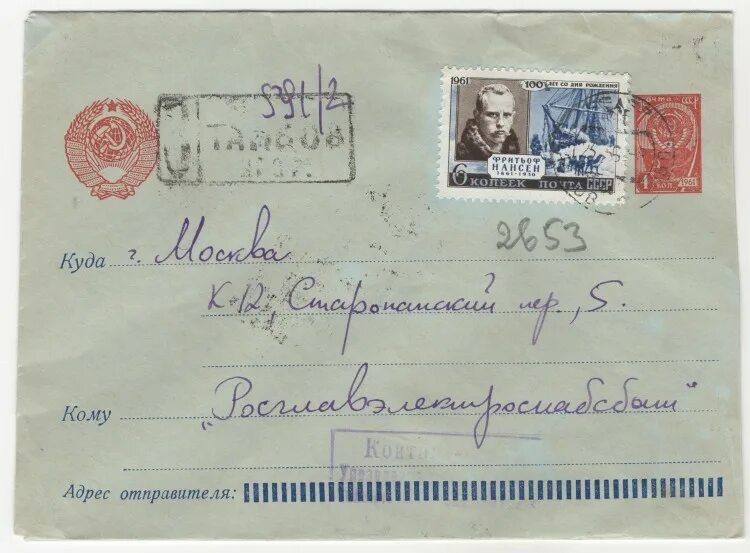 5791/2
ТАМБОВ
1961
100 ЛЕТ СО ДНЯ РОЖДЕНИЯ
ФРИТЬОФ
НАНСЕН
1861-1930
6 КОПЕЕК ПОЧТА СССР
ПОЧТА СССР
1961
2653
Куда г. Москва
К-12, Старопанский пер., 5.
Кому „Росглавэлектроснабсбыт"
Адрес отправителя: